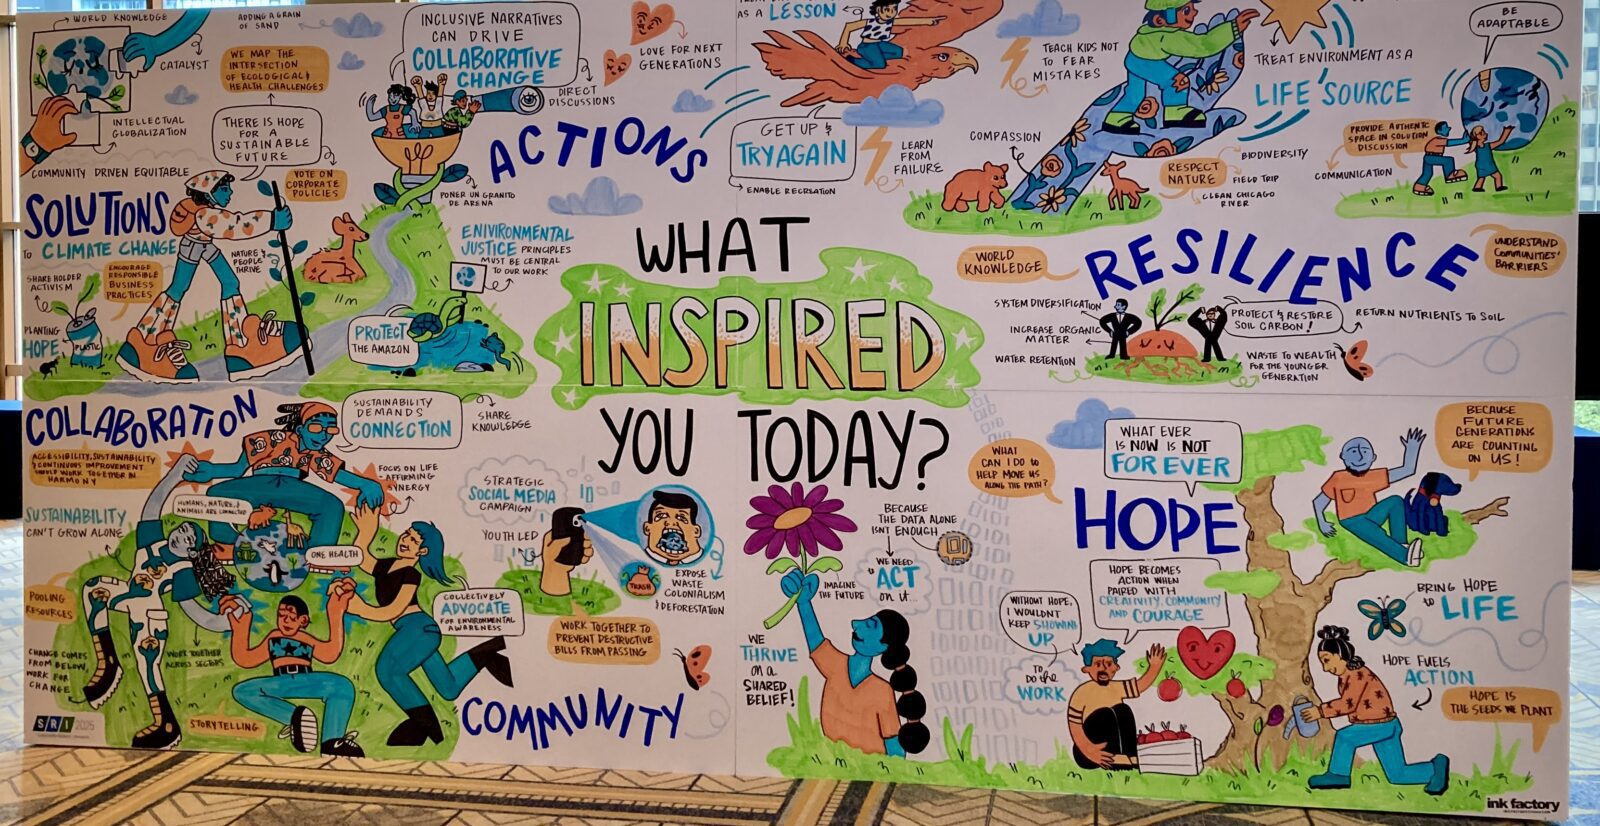 WORLD KNOWLEDGE
ADDING A GRAIN
OF SAND
CATALYST
INTELLECTUAL
GLOBALIZATION
WE MAP THE
INTERSECTION
OF ECOLOGICAL &
HEALTH CHALLENGES
THERE IS HOPE
FOR A
SUSTAINABLE
FUTURE
COMMUNITY DRIVEN EQUITABLE
SOLUTIONS
TO CLIMATE CHANGE
VOTE ON
CORPORATE
POLICIES
SHARE HOLDER
ACTIVISM
ENCOURAGE
RESPONSIBLE
BUSINESS
PRACTICES
NATURE &
PEOPLE
THRIVE
PLANTING
HOPE
PLASTIC
INCLUSIVE NARRATIVES
CAN DRIVE
COLLABORATIVE
CHANGE
DIRECT
DISCUSSIONS
LOVE FOR NEXT
GENERATIONS
ACTIONS
PONER UN GRANITO
DE ARENA
ENVIRONMENTAL
JUSTICE PRINCIPLES
MUST BE CENTRAL
TO OUR WORK
PROTECT
THE AMAZON
AS A LESSON
GET UP &
TRY AGAIN
ENABLE RECREATION
LEARN
FROM
FAILURE
TEACH KIDS NOT
TO FEAR
MISTAKES
COMPASSION
TREAT ENVIRONMENT AS A
LIFE SOURCE
BE
ADAPTABLE
RESPECT
NATURE
BIODIVERSITY
FIELD TRIP
CLEAN CHICAGO
RIVER
PROVIDE AUTHENTIC
SPACE IN SOLUTION
DISCUSSION
COMMUNICATION
WORLD
KNOWLEDGE
RESILIENCE
UNDERSTAND
COMMUNITIES'
BARRIERS
SYSTEM DIVERSIFICATION
INCREASE ORGANIC
MATTER
WATER RETENTION
PROTECT & RESTORE
SOIL CARBON!
RETURN NUTRIENTS TO SOIL
WASTE TO WEALTH
FOR THE YOUNGER
GENERATION
WHAT
INSPIRED
YOU TODAY?
COLLABORATION
SUSTAINABILITY
DEMANDS
CONNECTION
SHARE
KNOWLEDGE
ACCESSIBILITY, SUSTAINABILITY
& CONTINUOUS IMPROVEMENT
SHOULD WORK TOGETHER IN
HARMONY
FOCUS ON LIFE
AFFIRMING
SYNERGY
HUMANS, NATURE, &
ANIMALS ARE CONNECTED
SUSTAINABILITY
CAN'T GROW ALONE
ONE HEALTH
POOLING
RESOURCES
CHANGE COMES
FROM BELOW,
WORK FOR
CHANGE
WORK TOGETHER
ACROSS SECTORS
STORYTELLING
COLLECTIVELY
ADVOCATE
FOR ENVIRONMENTAL
AWARENESS
COMMUNITY
SRI 2025
STRATEGIC
SOCIAL MEDIA
CAMPAIGN
YOUTH LED
TRASH
EXPOSE
WASTE
COLONIALISM
& DEFORESTATION
WORK TOGETHER TO
PREVENT DESTRUCTIVE
BILLS FROM PASSING
WE
THRIVE
on a
SHARED
BELIEF!
IMAGINE
THE FUTURE
BECAUSE
THE DATA ALONE
ISN'T ENOUGH
WE NEED
to ACT
on it...
WHAT
CAN I DO to
HELP MOVE US
ALONG THE PATH?
WHAT EVER
IS NOW IS NOT
FOR EVER
HOPE
HOPE BECOMES
ACTION WHEN
PAIRED WITH
CREATIVITY, COMMUNITY
AND COURAGE
WITHOUT HOPE,
I WOULDN'T
KEEP SHOWING
UP
TO
do the
WORK
BECAUSE
FUTURE
GENERATIONS
ARE COUNTING
ON US!
BRING HOPE
to LIFE
HOPE FUELS
ACTION
HOPE IS
THE SEEDS WE PLANT
ink factory